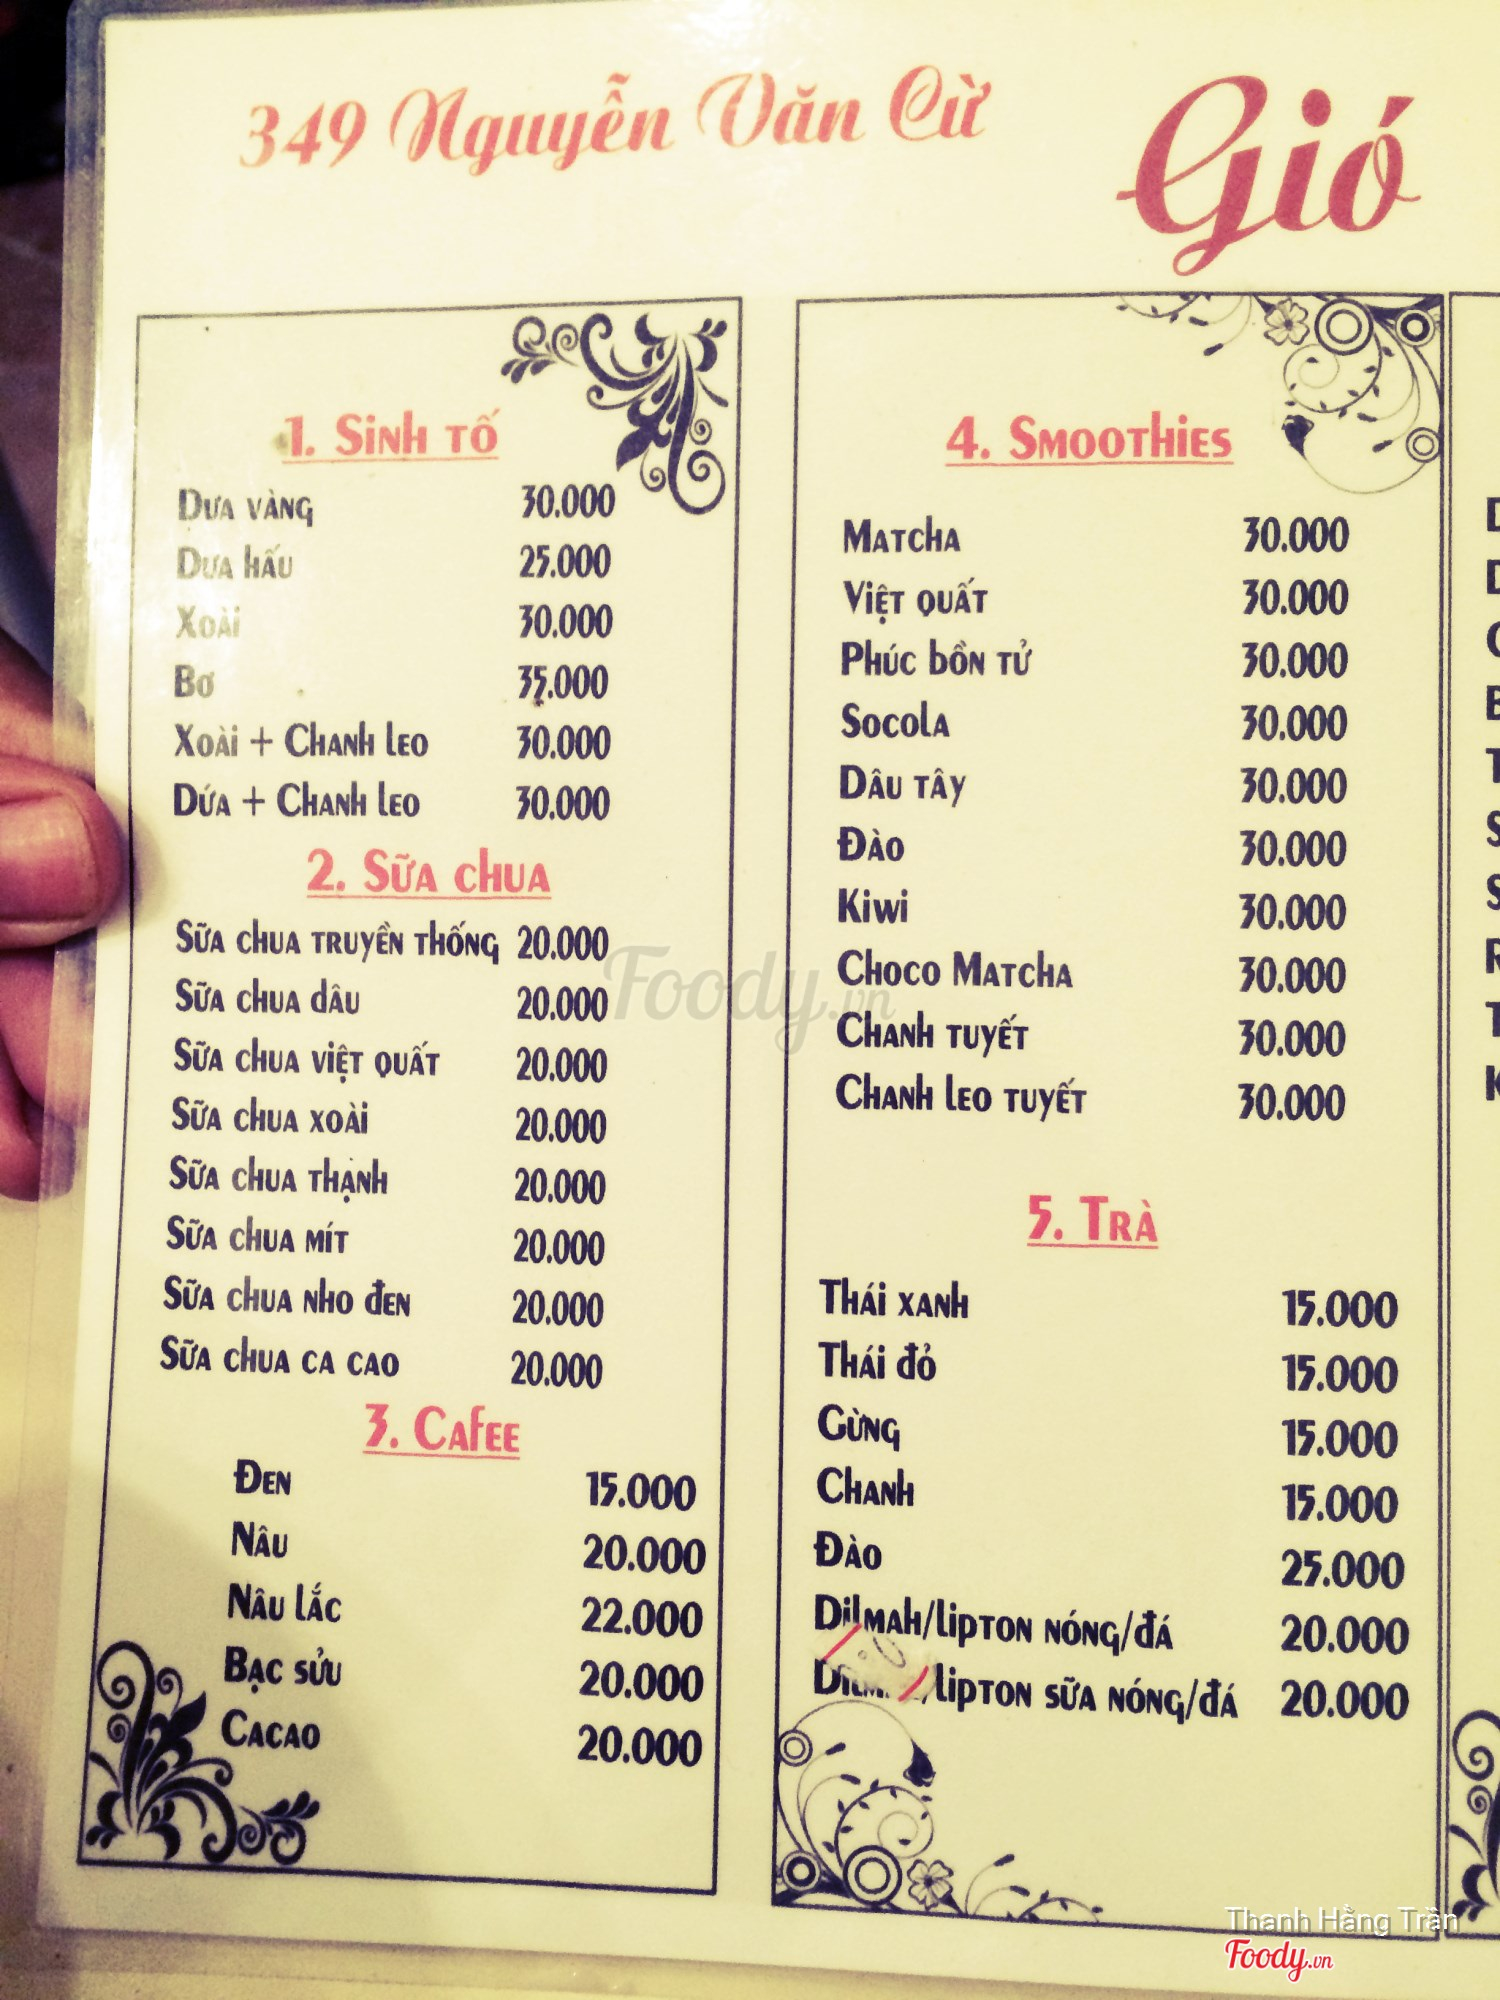 349 Nguyễn Văn Cừ
Gió
1. Sinh tố
Dưa vàng 30.000
Dưa hấu 25.000
Xoài 30.000
Bơ 35.000
Xoài + Chanh leo 30.000
Dứa + Chanh leo 30.000
2. Sữa chua
Sữa chua truyền thống 20.000
Sữa chua dâu 20.000
Sữa chua việt quất 20.000
Sữa chua xoài 20.000
Sữa chua thạnh 20.000
Sữa chua mít 20.000
Sữa chua nho đen 20.000
Sữa chua ca cao 20.000
3. Cafee
Đen 15.000
Nâu 20.000
Nâu lắc 22.000
Bạc sửu 20.000
Cacao 20.000
4. Smoothies
Matcha 30.000
Việt quất 30.000
Phúc bồn tử 30.000
Socola 30.000
Dâu tây 30.000
Đào 30.000
Kiwi 30.000
Choco Matcha 30.000
Chanh tuyết 30.000
Chanh leo tuyết 30.000
5. Trà
Thái xanh 15.000
Thái đỏ 15.000
Gừng 15.000
Chanh 15.000
Đào 25.000
Dilmah/lipton nóng/đá 20.000
/lipton sữa nóng/đá 20.000
Foody.vn
Thanh Hằng Trần
Foody.vn